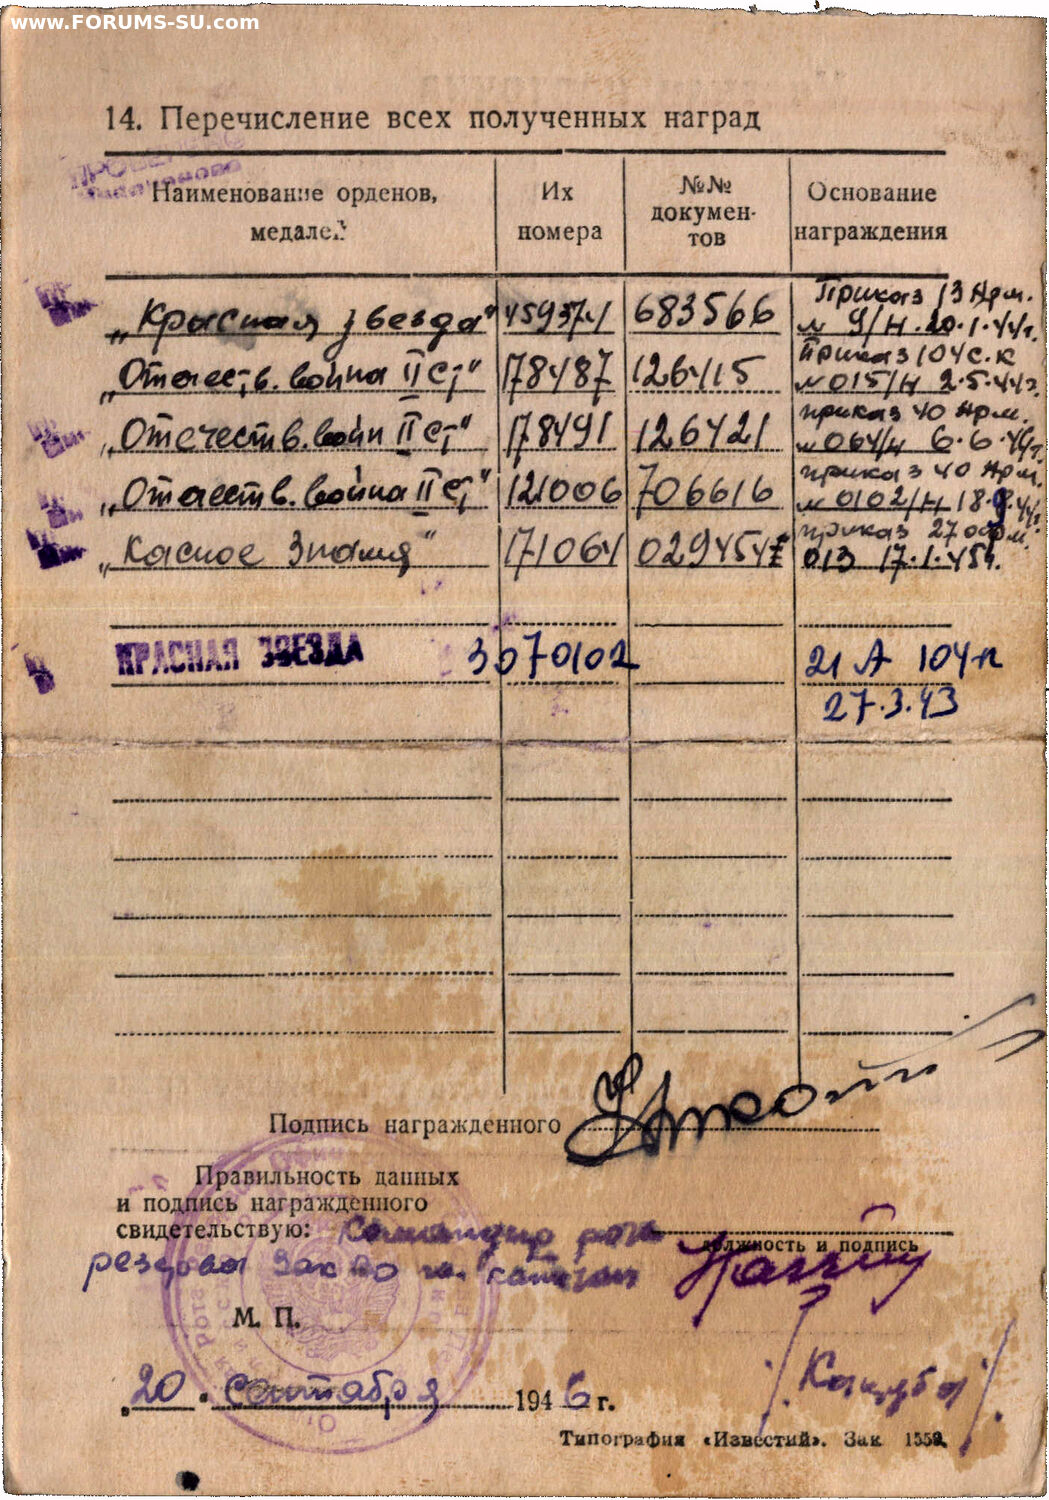 www.FORUMS-SU.com
14. Перечисление всех полученных наград
Наименование орденов, медалей
Их номера
№№ докумен-тов
Основание награждения
„Красная звезда" 683566 Приказ 13 Арм. № 9/н. 20.1.44г.
„Отечеств. война II ст" 178487 126415 Приказ 104 с.к №015/н 2.5.44г.
„Отечеств. войн II ст" 178491 126421 приказ 40 Арм. №064/н 6.6.44г.
„Отечеств. война II ст" 121006 706616 приказ 40 Арм. №0102/н 18.9.44г.
„Касное Знамя" 171064 029454 приказ 27 013 17.1.45г.
КРАСНАЯ ЗВЕЗДА 3070102 21 А 104-п
27.3.43
Подпись награжденного
Правильность данных
и подпись награжденного
свидетельствую: Командир роты
должность и подпись
резерва ЗакВО капитан
М. П.
„20" Сентября 1946 г.
Типография «Известий». Зак 1559.